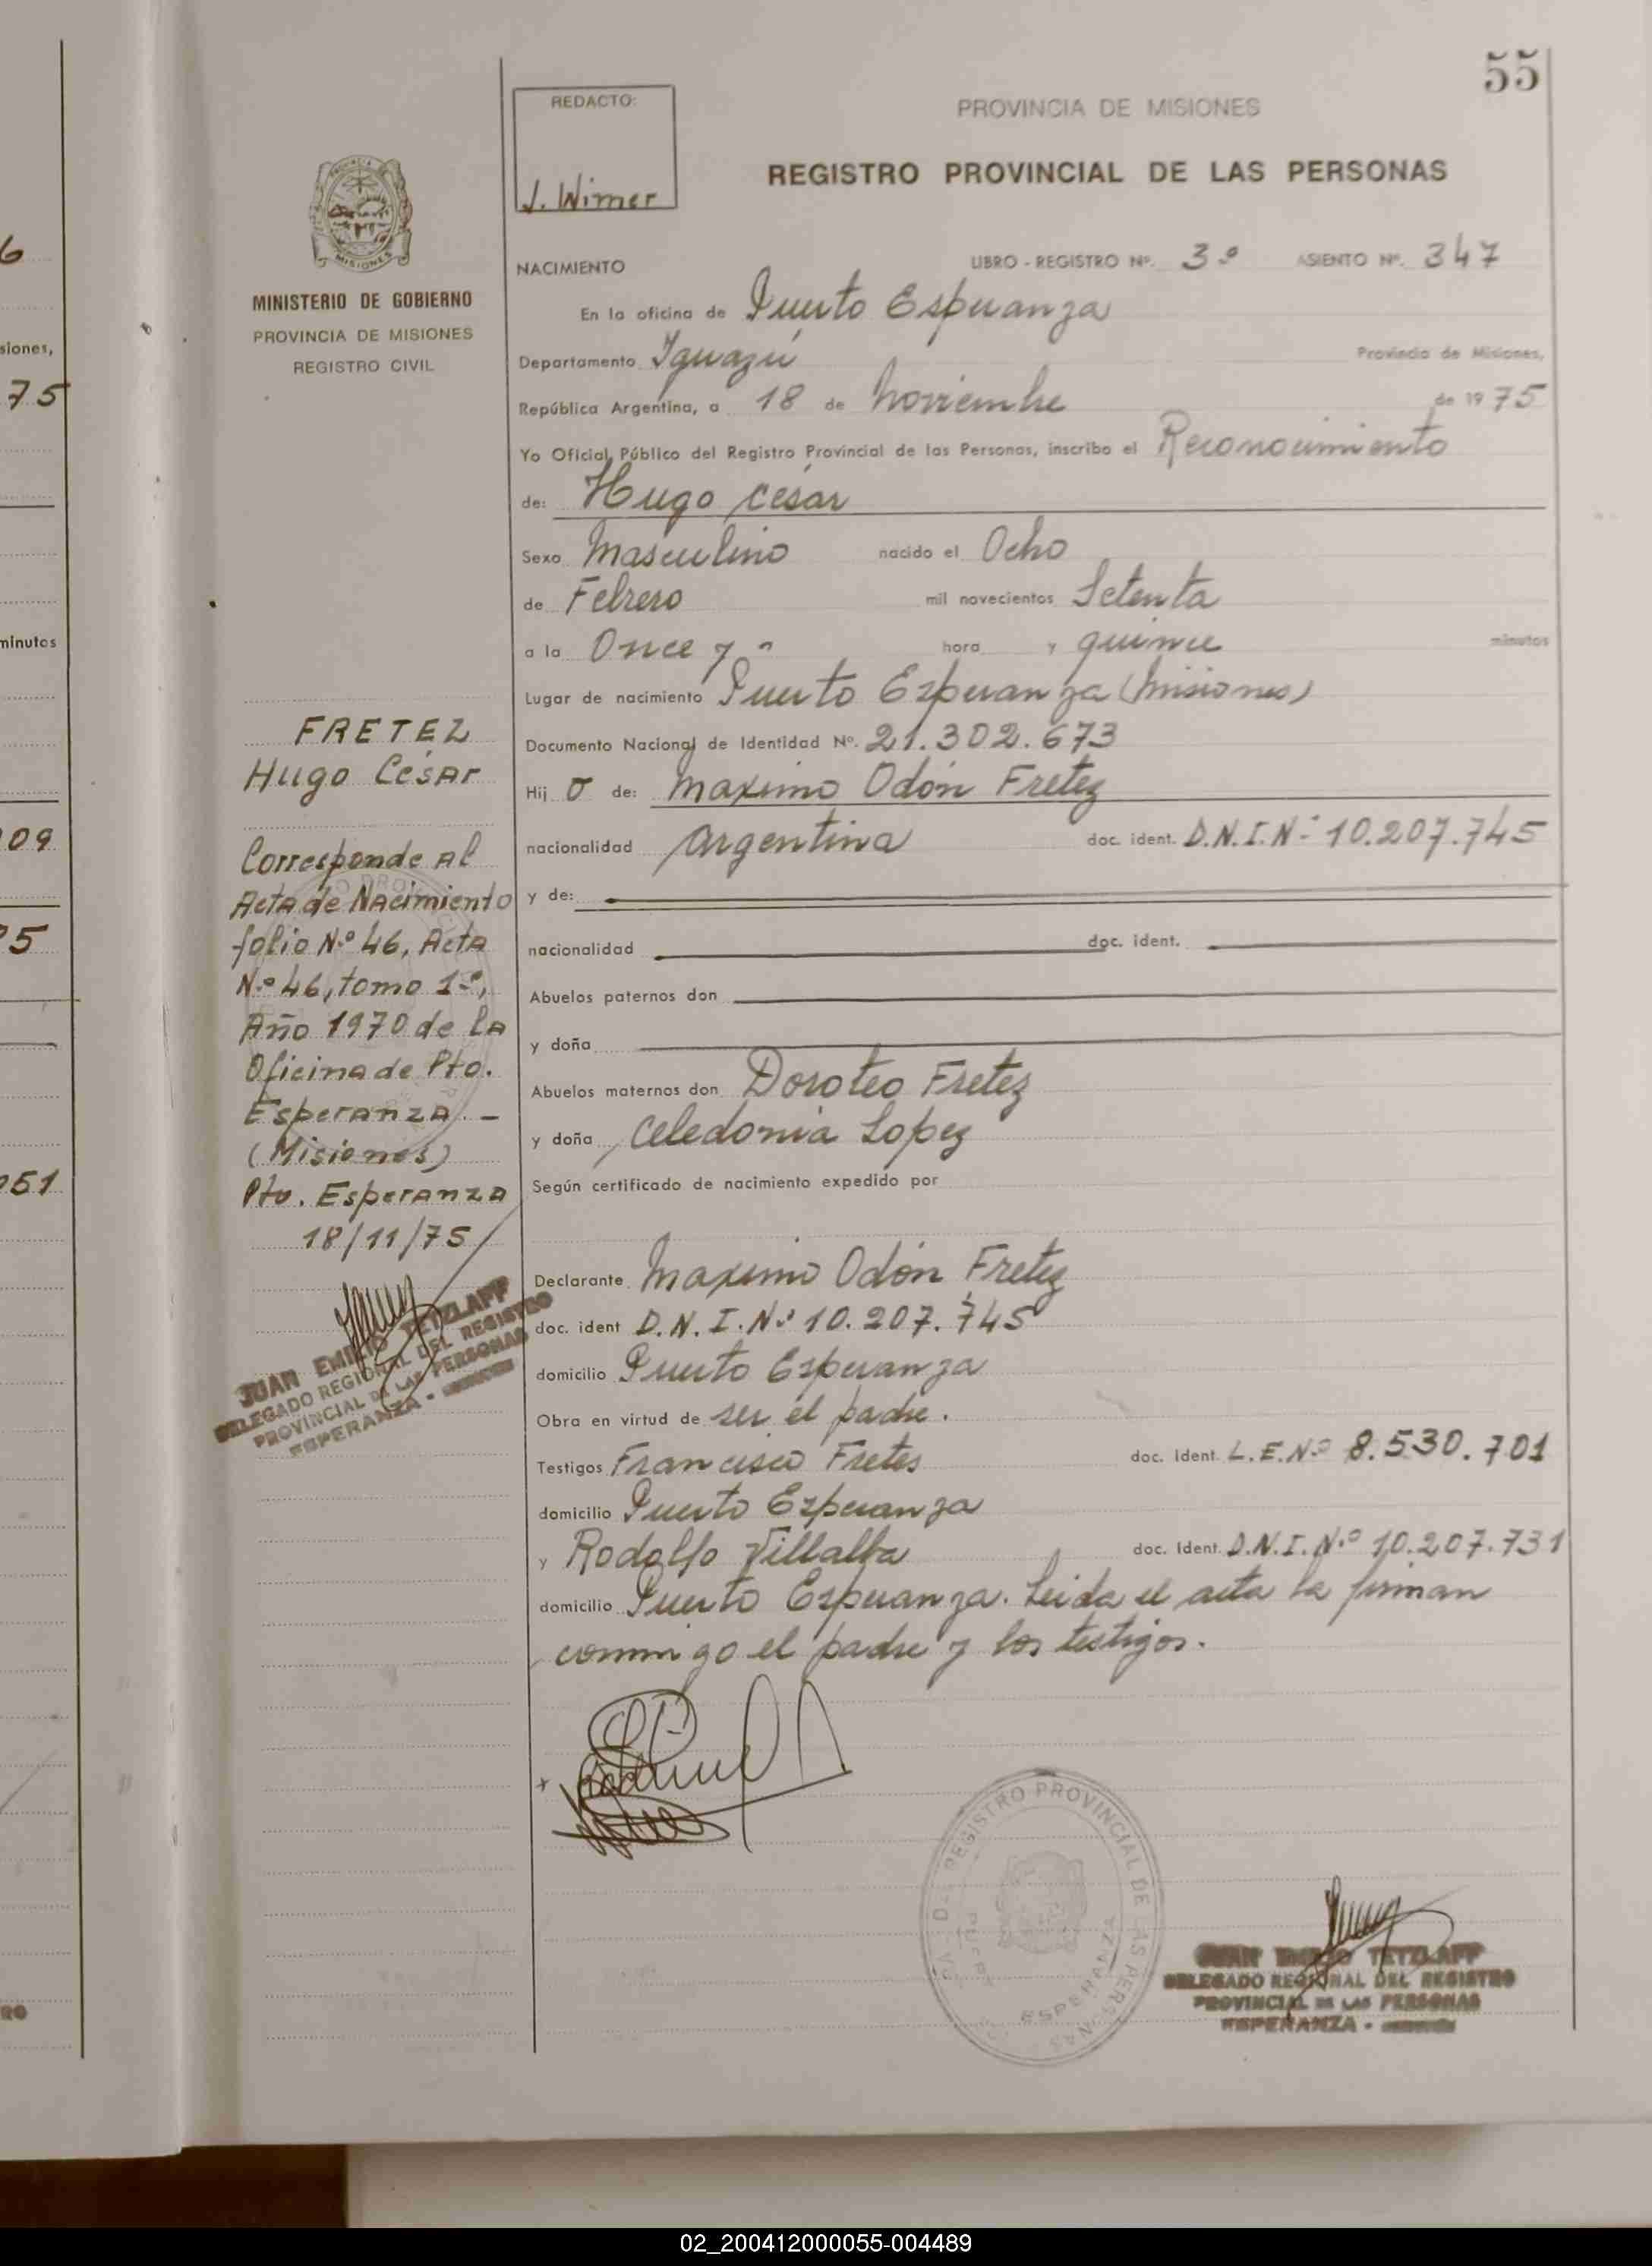 55
REDACTO:
J. Wimer
PROVINCIA DE MISIONES
REGISTRO PROVINCIAL DE LAS PERSONAS
MISIONES
MINISTERIO DE GOBIERNO
PROVINCIA DE MISIONES
REGISTRO CIVIL
NACIMIENTO LIBRO - REGISTRO Nº. 3º ASIENTO Nº. 347
En la oficina de Puerto Esperanza
Departamento Iguazú Provincia de Misiones,
República Argentina, a 18 de noviembre de 1975
Yo Oficial Público del Registro Provincial de las Personas, inscribo el Reconocimiento
de: Hugo César
Sexo Masculino nacido el Ocho
de Febrero mil novecientos Setenta
a la Once y " hora y quince minutos
Lugar de nacimiento Puerto Esperanza (Misiones)
Documento Nacional de Identidad Nº. 21.302.673
Hij o de: Maximo Odón Fretez
nacionalidad Argentina doc. ident. D.N.I.Nº 10.207.745
y de:
nacionalidad doc. ident.
Abuelos paternos don
y doña
Abuelos maternos don Doroteo Fretez
y doña Celedonia Lopez
Según certificado de nacimiento expedido por
Declarante Maximo Odón Fretez
doc. ident D.N.I.Nº 10.207.745
domicilio Puerto Esperanza
Obra en virtud de ser el padre.
Testigos Francisco Fretes doc. Ident. L.E.Nº 8.530.701
domicilio Puerto Esperanza
y Rodolfo Villalba doc. Ident. D.N.I.Nº 10.207.731
domicilio Puerto Esperanza. Leida el acta la firman
conmigo el padre y los testigos.
FRETEZ
Hugo César
Corresponde al
Acta de Nacimiento
folio Nº 46, Acta
Nº 46, tomo 1º,
Año 1970 de la
Oficina de Pto.
Esperanza. -
(Misiones)
Pto. Esperanza
18/11/75
JUAN EMILIO TETZLAFF
DELEGADO REGIONAL DEL REGISTRO
PROVINCIAL DE LAS PERSONAS
ESPERANZA -
REGISTRO PROVINCIAL DE LAS PERSONAS
JUAN EMILIO TETZLAFF
DELEGADO REGIONAL DEL REGISTRO
PROVINCIAL DE LAS PERSONAS
ESPERANZA -
6
siones,
75
minutos
09
5
51
02_200412000055-004489